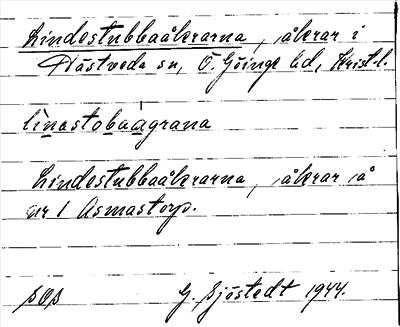 Lindestubbaåkrarna, åkrar i
Hästveda sn, Ö. Göinge hd, Krist. l.
lìnastobaagrana
Lindestubbaåkrarna, åkrar å
nr 1 Asmastorp.
SOS G. Sjöstedt 1944.